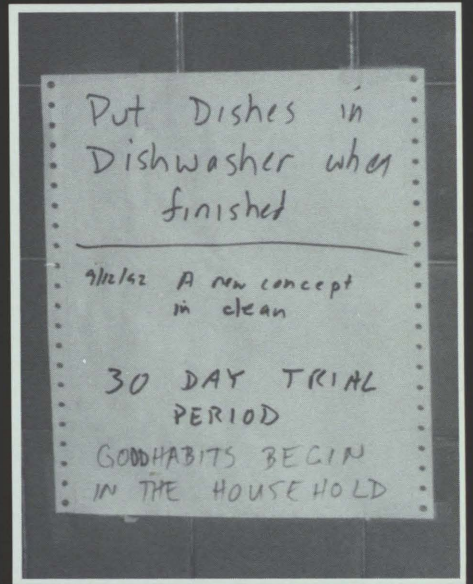 Put Dishes in
Dishwasher when
finished
9/12/92 A new concept
in clean
30 DAY TRIAL
PERIOD
GOODHABITS BEGIN
IN THE HOUSEHOLD